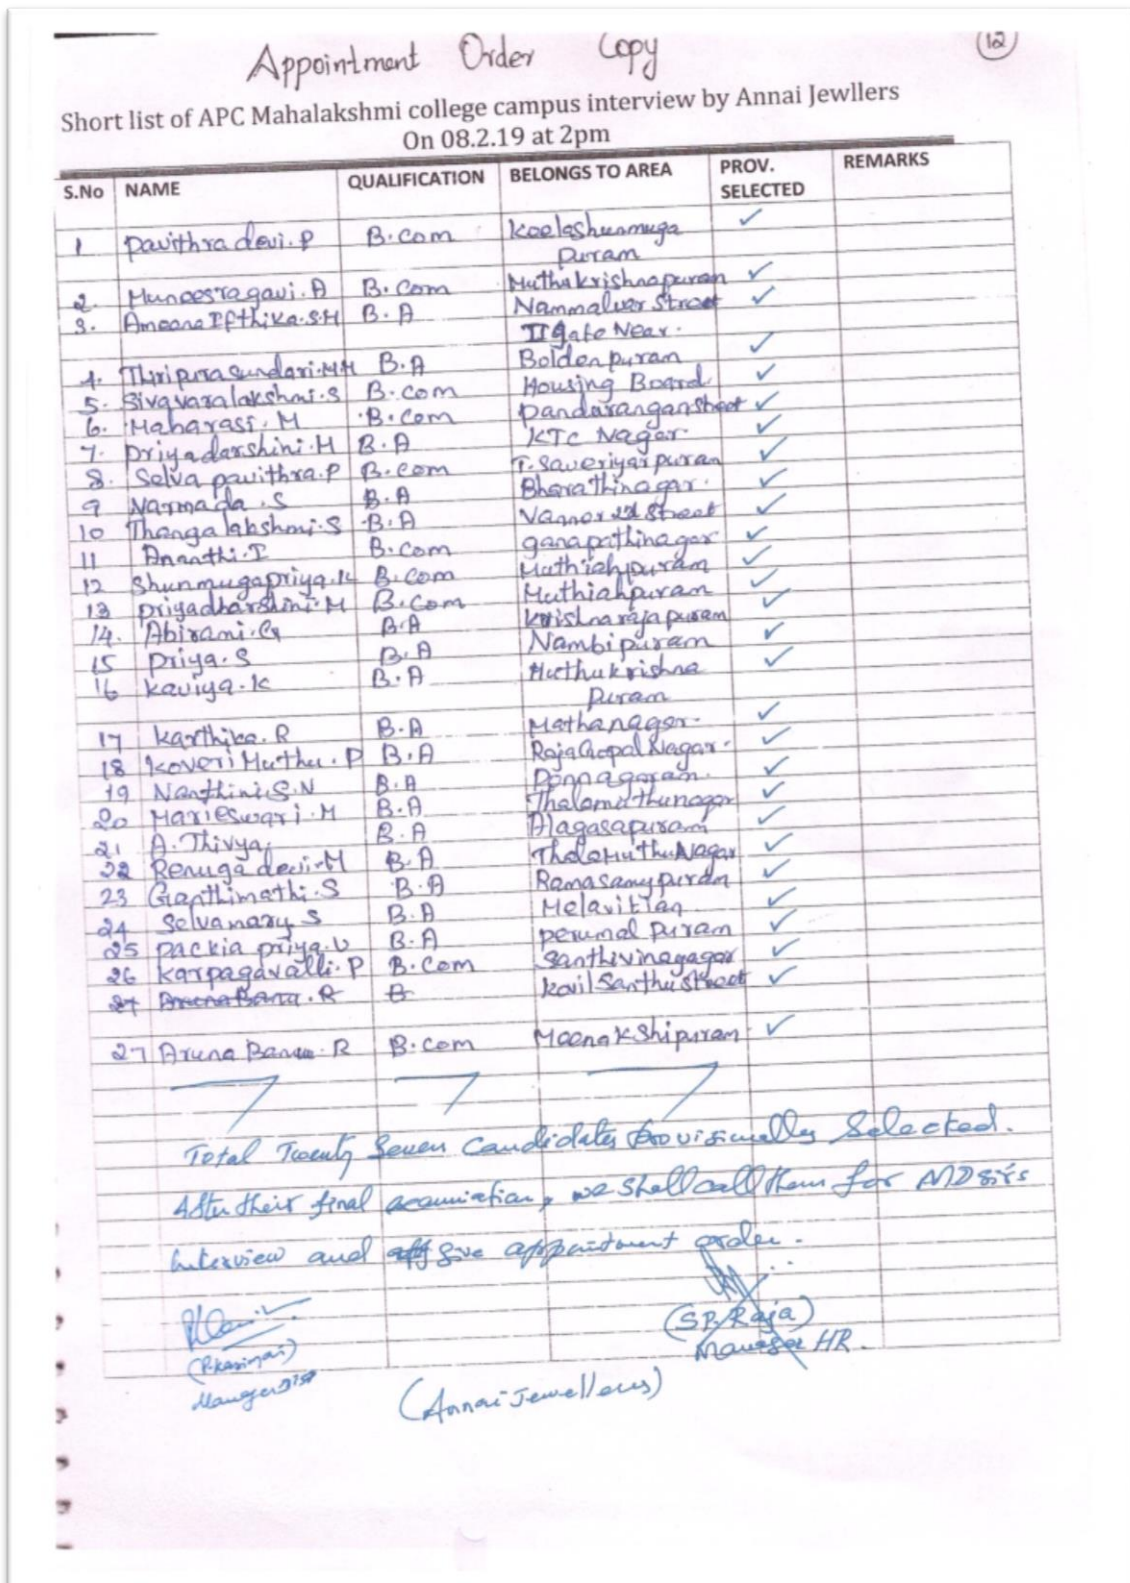 Appointment Order Copy
12
Short list of APC Mahalakshmi college campus interview by Annai Jewllers
On 08.2.19 at 2pm
S.No NAME QUALIFICATION BELONGS TO AREA PROV. SELECTED REMARKS
1 Pavithra devi.P B.com Keelashunmuga ✓
puram
2. Muneesragavi.A B.com Muthukrishnapuram ✓
3. Ameena Ifthika.S.H B.A Nammalvar Street ✓
II gate Near.
4. Thiripurasundari.MM B.A Boldenpuram ✓
5. Sivavaralakshmi.S B.com Housing Board ✓
6. Maharasi.M B.com Pandarangan street ✓
7. Priyadarshini.M B.A KTC Nagar. ✓
8. Selva pavithra.P B.com T.Saveriyarpuram ✓
9 Narmada.S B.A Bharathinagar. ✓
10 Thangalakshmi.S B.A 2nd Street ✓
11 Ananthi.I B.com ganapathinagar ✓
12 Shunmugapriya.K B.com Muthiahpuram ✓
13 Priyadharshini.M B.com Muthiahpuram ✓
14. Abirami.G B.A Krishnarajapuram ✓
15 Priya.S B.A Nambipuram ✓
16 Kaviya.K B.A Muthukrishna ✓
puram
17 Karthika.R B.A Mathanagar. ✓
18 Koveri Muthu.P B.A RajaGopal Nagar. ✓
19 Nanthini.S.N B.A Ponnagaram. ✓
20 Marieswari.M B.A Thalamuthunagar ✓
21 A.Thivya B.A Alagasapuram ✓
22 Renuga devi.M B.A ThalaMuthuNagar ✓
23 Ganthimathi.S B.A Ramasamypuram ✓
24 Selvanary S B.A Melavittan ✓
25 Packia priya.U B.A perumal puram ✓
26 Karpagavalli.P B.com Santhivinayagar ✓
27 Aruna Banu.R B Kovil Santhu street ✓
27 Aruna Banu.R B.com Meenakshipuram ✓
Total Twenty Seven Candidates provisionally Selected.
After their final we shall call them for MD sir's
Interview and give appointment order.
(S.P. Raja)
Manager HR.
Manager
(Annai Jewellers)